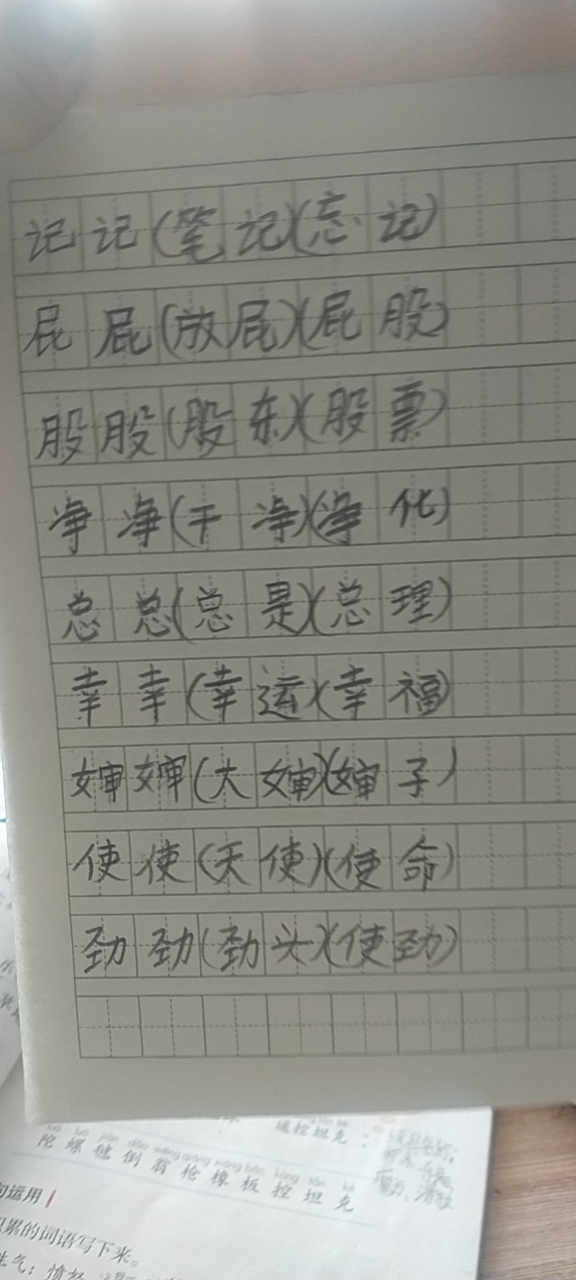 记记(笔记)(忘记)
屁屁(放屁)(屁股)
股股(股东)(股票)
净净(干净)(净化)
总总(总是)(总理)
幸幸(幸运)(幸福)
婶婶(大婶)(婶子)
使使(天使)(使命)
劲劲(劲头)(使劲)
遥控坦克:
陀螺毽倒翁枪橡板控坦克
运用
累的词语写下来。
生气:愤怒